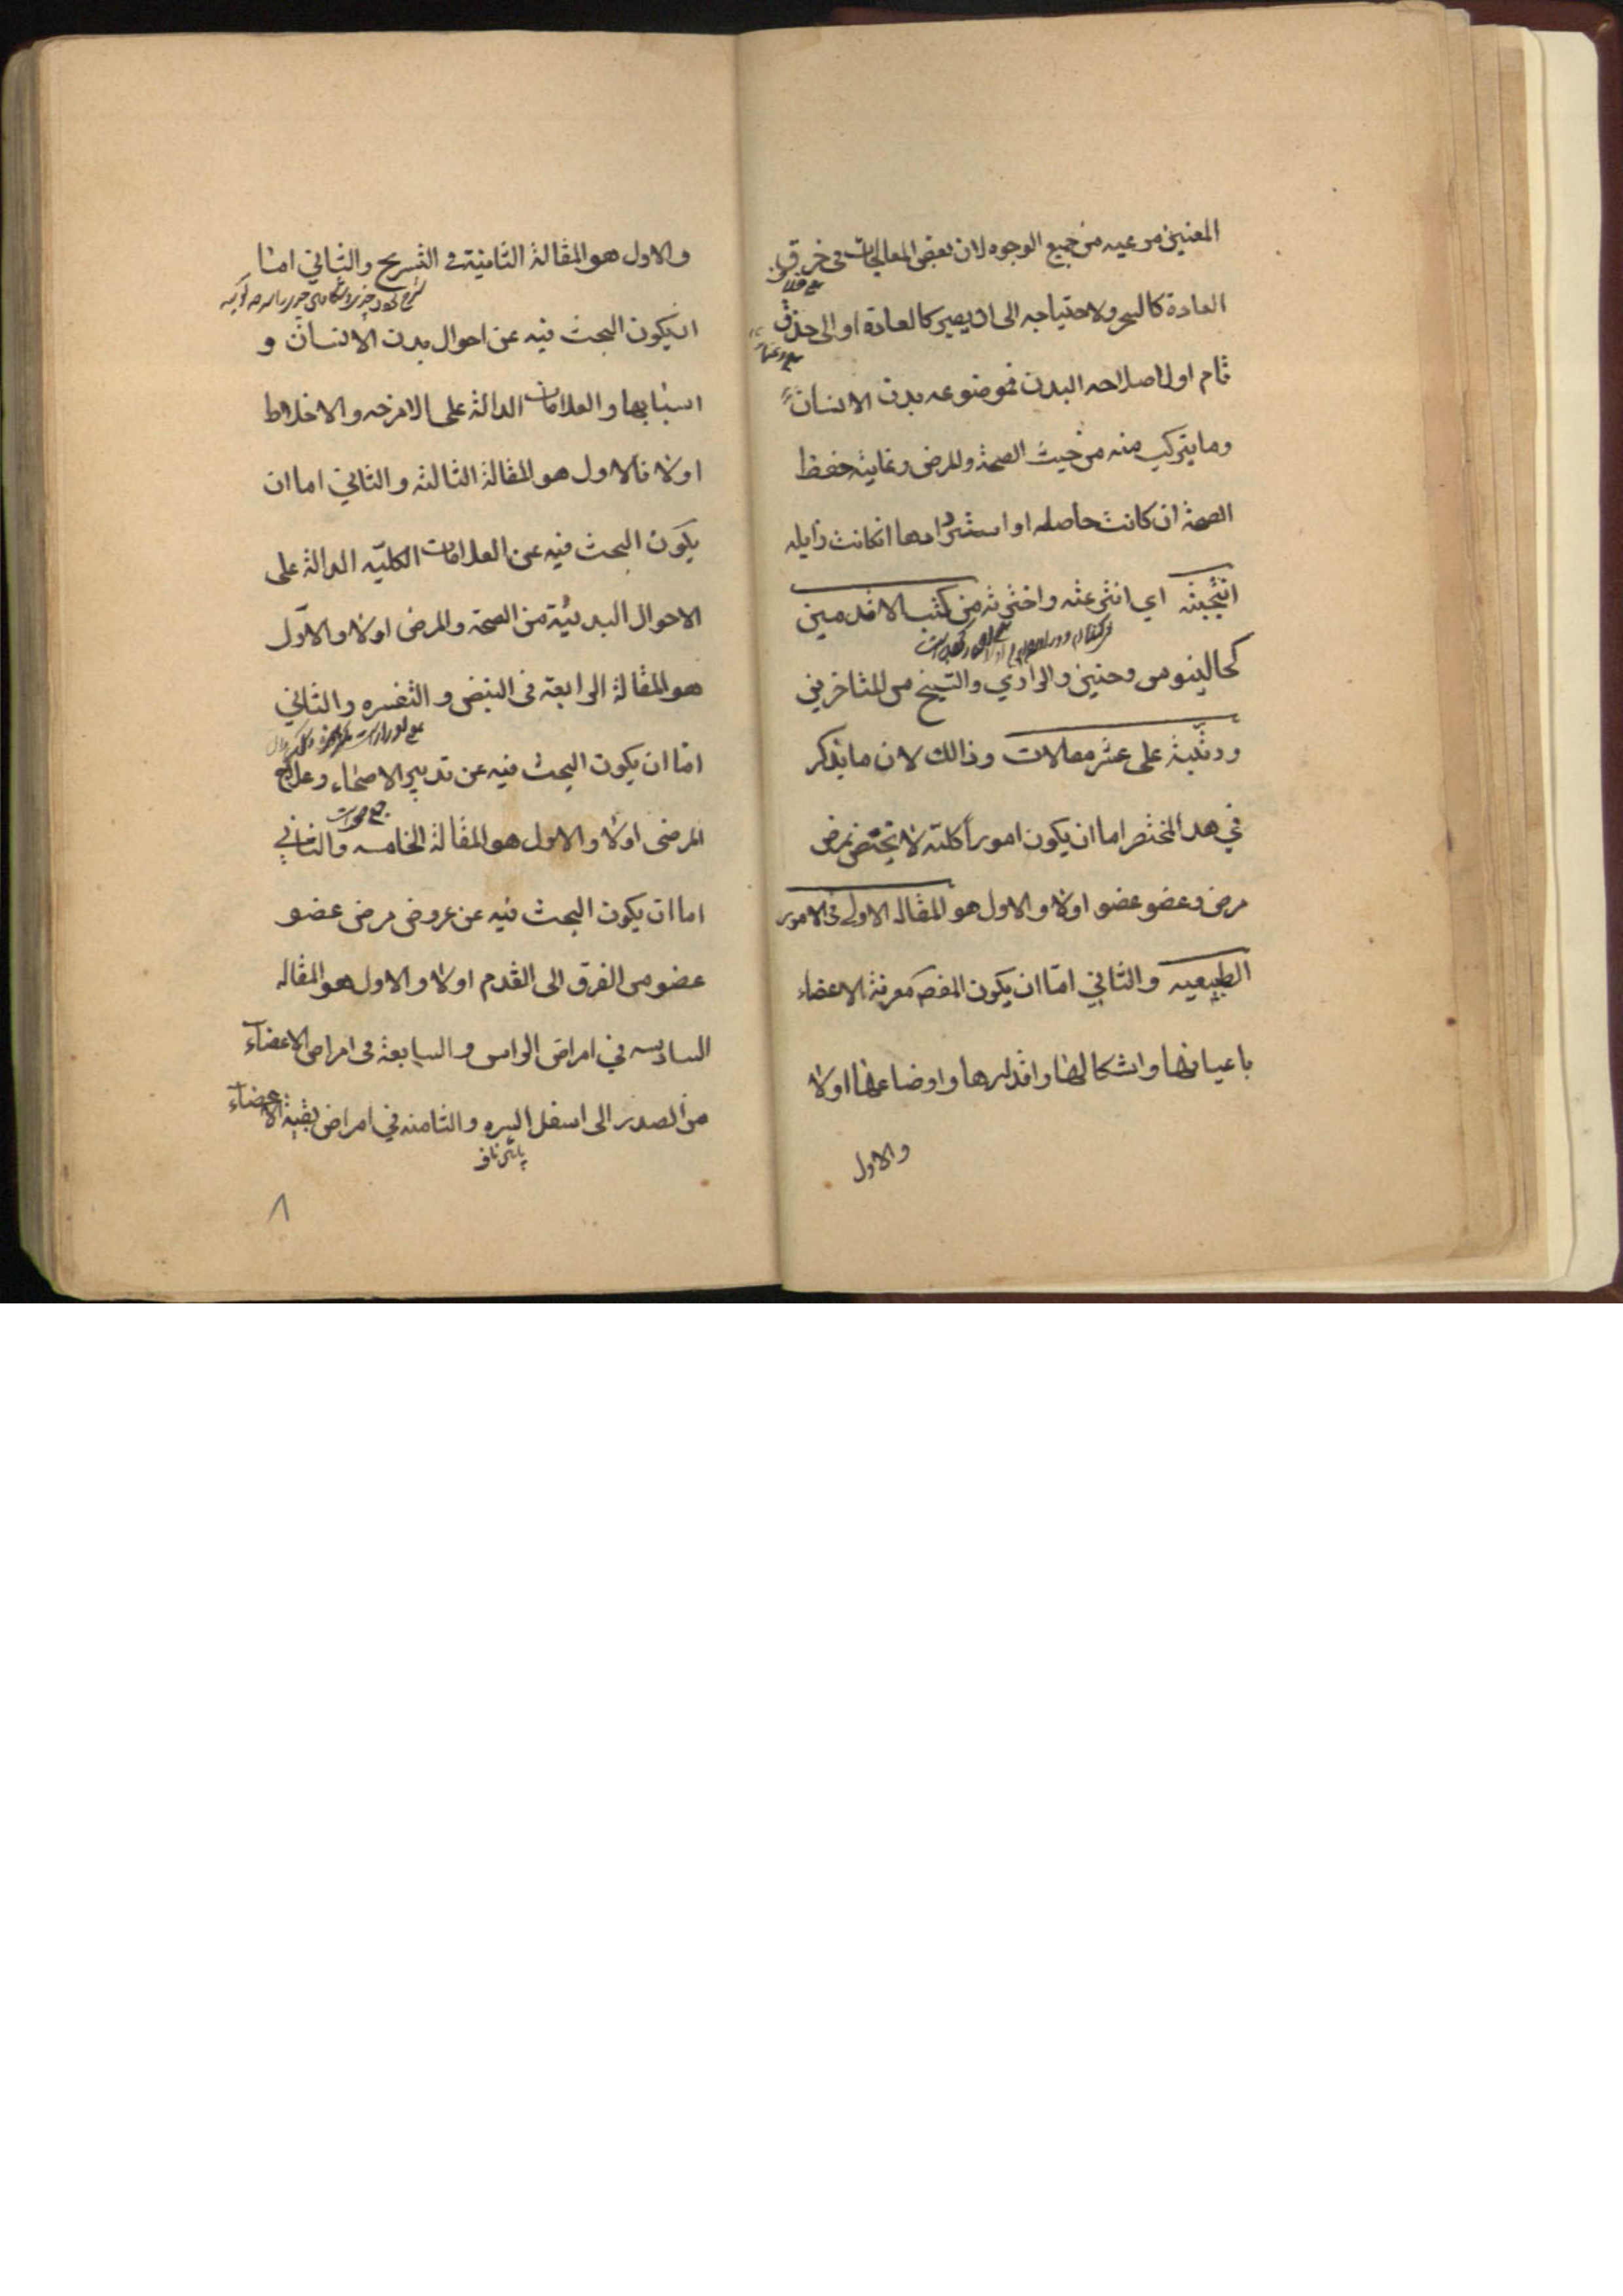 المعنيين مرعيه من جميع الوجوه لان بعض المعالجات في خرق
العادة كالسحر ولاحتياجه الى ان يصير كالعادة او الى حذق
تام او لاصلاحه البدن فموضوعه بدن الانسان
وما يتركب منه من حيث الصحة والمرض وغايته حفظ
الصحة ان كانت حاصله او استردادها انكانت زايله
انتجبته اي انتزعته واخترته من كتب الاقدمين
كجالينوس وحنين والرازي والشيخ من المتاخرين
ورتبته على عشر مقالات وذالك لان ما يذكر
في هذا المختصر اما ان يكون اموراً كليّه لا يختص بمرض
مرض وعضو عضو اولا والاول هو المقاله الاولى فى الامور
الطبيعيه والثاني امّا ان يكون المقصم معرفة الاعضاء
باعيانها واشكالها واقدارها واوضاعها اولا
والاول
والاول هو المقالة الثانية فى التشريح والثاني امّا
ان يكون البحث فيه عن احوال بدن الانسان و
اسبابها والعلامات الدالة على الامزجه والاخلاط
اولا فالاول هو المقالة الثالثه والثاني اما ان
يكون البحث فيه عن العلامات الكليّه الدالة على
الاحوال البدنيّة من الصحة والمرض اولا والاوّل
هو المقالة الرابعة فى النبض والتفسره والثاني
امّا ان يكون البحث فيه عن تدبير الاصحاء وعلاج
المرضى اولا والاول هو المقالة الخامسه والثاني
اما ان يكون البحث فيه عن عروض مرض عضو
عضو من الفرق الى القدم اولا والاول هو المقاله
السادسه في امراض الراس والسابعة فى امراض الاعضاء
من الصدر الى اسفل السره والثامنه في امراض بقية الاعضاء
پائين ناف
٨